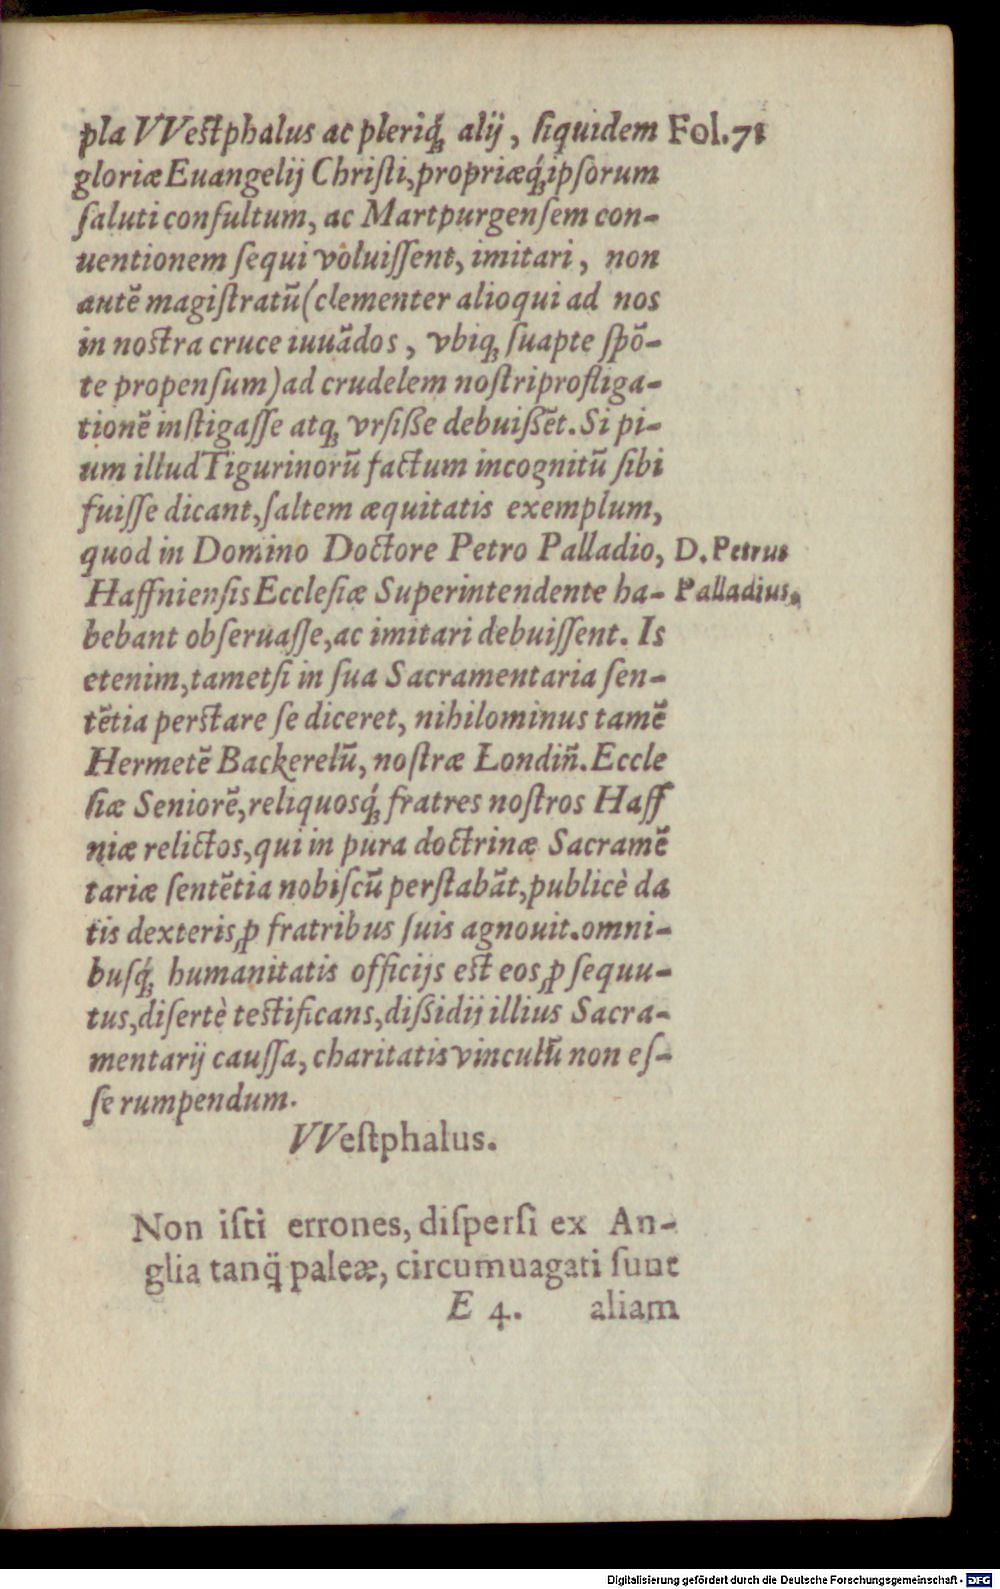 pla VVestphalus ac pleriq́ꝫ alij, siquidem Fol.71
gloriæ Euangelij Christi, propriæq́ꝫ ipsorum
saluti consultum, ac Martpurgensem con-
uentionem sequi voluissent, imitari, non
autē magistratū (clementer alioqui ad nos
in nostra cruce iuuādos, vbiqꝫ suapte spō-
te propensum) ad crudelem nostri profliga-
tionē instigasse atqꝫ vrsiße debuißēt. Si pi-
um illud Tigurinorū factum incognitū sibi
fuisse dicant, saltem æquitatis exemplum,
quod in Domino Doctore Petro Palladio, D. Petrus
Haffniensis Ecclesiæ Superintendente ha- Palladius.
bebant obseruasse, ac imitari debuissent. Is
etenim, tametsi in sua Sacramentaria sen-
tētia perstare se diceret, nihilominus tamē
Hermetē Backerelū, nostræ Londin̄. Eccle
siæ Seniorē, reliquosq́ꝫ fratres nostros Haff
niæ relictos, qui in pura doctrinæ Sacramē
tariæ sentētia nobiscū perstabāt, publicè da
tis dexteris, ꝓ fratribus suis agnouit. omni-
busq́ꝫ humanitatis officijs est eos ꝓsequu-
tus, disertè testificans, dißidij illius Sacra-
mentarij caussa, charitatis vinculū non es-
se rumpendum.
VVestphalus.
Non isti errones, dispersi ex An-
glia tanq̄ paleæ, circumuagati sunt
E 4. aliam
Digitalisierung gefördert durch die Deutsche Forschungsgemeinschaft - DFG